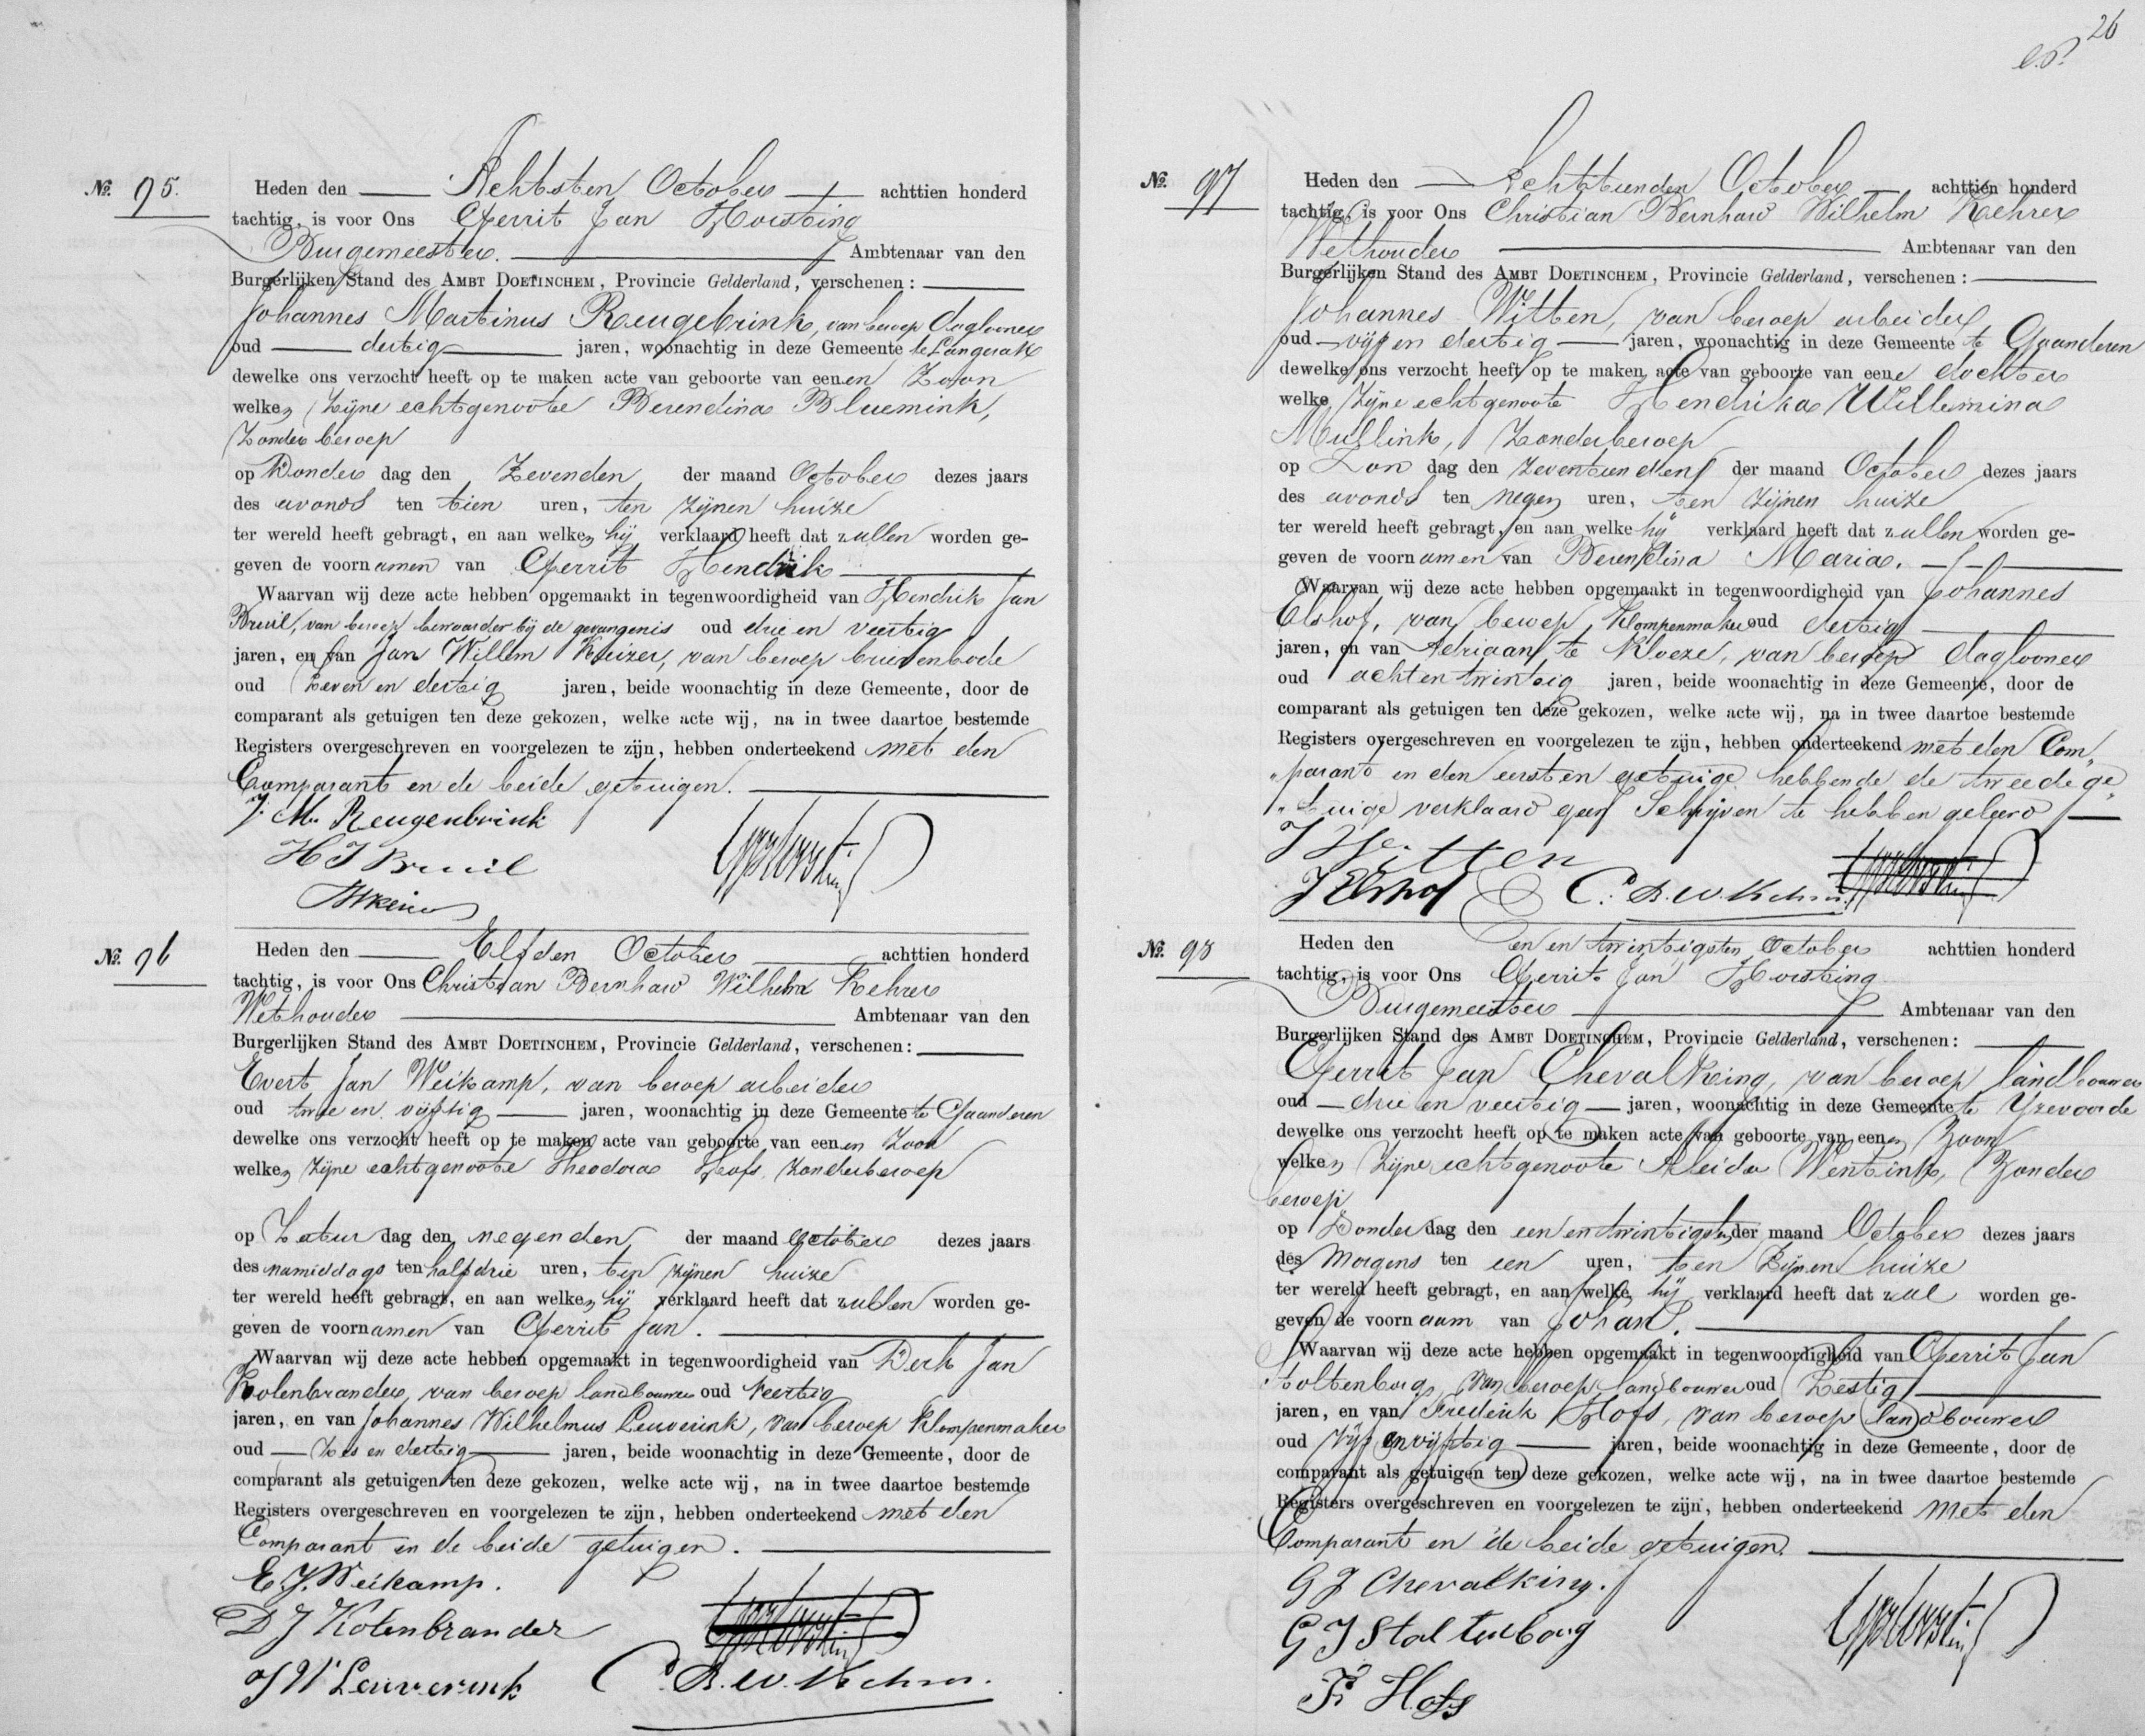 26
No. 95.
Heden den Achtsten October achttien honderd
tachtig, is voor Ons Gerrit Jan Horsting
Burgemeester. Ambtenaar van den
Burgerlijken Stand des AMBT DOETINCHEM, Provincie Gelderland, verschenen:
Johannes Martinus Reugebrink, van beroep daglooner
oud dertig jaren, woonachtig in deze Gemeente te Langerak
dewelke ons verzocht heeft op te maken acte van geboorte van eenen Zoon
welken Zijne echtgenoote Berendina Bluemink,
Zonder beroep
op Donder dag den Zevenden der maand October dezes jaars
des avonds ten tien uren, ten zijnen huize
ter wereld heeft gebragt, en aan welken hij verklaard heeft dat zullen worden ge-
geven de voornamen van Gerrit Hendrik
Waarvan wij deze acte hebben opgemaakt in tegenwoordigheid van Hendrik Jan
Bruil, van beroep bewaarder bij de gevangenis oud drie en veertig
jaren, en van Jan Willem Keizer, van beroep brievenbode
oud Zeven en dertig jaren, beide woonachtig in deze Gemeente, door de
comparant als getuigen ten deze gekozen, welke acte wij, na in twee daartoe bestemde
Registers overgeschreven en voorgelezen te zijn, hebben onderteekend met den
Comparant en de beide getuigen.
J. M. Reugenbrink
H J Bruil
No. 96
Heden den Elfden October achttien honderd
tachtig, is voor Ons Christian Bernhard Wilhelm Kehrer
Wethouder Ambtenaar van den
Burgerlijken Stand des AMBT DOETINCHEM, Provincie Gelderland, verschenen:
Evert Jan Weikamp, van beroep arbeider
oud twee en vijftig jaren, woonachtig in deze Gemeente te Gaanderen
dewelke ons verzocht heeft op te maken acte van geboorte van eenen Zoon
welken Zijne echtgenoote Theodora Hofs, Zonderberoep
op Zatur dag den negenden der maand October dezes jaars
des namiddags ten half drie uren, ten zijnen huize
ter wereld heeft gebragt, en aan welken hij verklaard heeft dat zullen worden ge-
geven de voornamen van Gerrit Jan.
Waarvan wij deze acte hebben opgemaakt in tegenwoordigheid van Derk Jan
Kolenbrander, van beroep landbouwer oud Veertig
jaren, en van Johannes Wilhelmus Leuverink, van beroep Klompenmaker
oud Zes en dertig jaren, beide woonachtig in deze Gemeente, door de
comparant als getuigen ten deze gekozen, welke acte wij, na in twee daartoe bestemde
Registers overgeschreven en voorgelezen te zijn, hebben onderteekend met den
Comparant en de beide getuigen.
E. J. Weikamp.
D J Kolenbrander
J W Leuverink C. B. W. Kehrer.
No. 97
Heden den Achttienden October achttien honderd
tachtig, is voor Ons Christian Bernhard Wilhelm Kehrer
Wethouder Ambtenaar van den
Burgerlijken Stand des AMBT DOETINCHEM, Provincie Gelderland, verschenen:
Johannes Witten, van beroep arbeider
oud vijf en dertig jaren, woonachtig in deze Gemeente te Gaanderen
dewelke ons verzocht heeft op te maken acte van geboorte van eene dochter
welke Zijne echtgenoote Hendrika Willemina
Mullink, Zonderberoep
op Zon dag den zeventienden der maand October dezes jaars
des avonds ten negen uren, ten zijnen huize
ter wereld heeft gebragt, en aan welke hij verklaard heeft dat zullen worden ge-
geven de voornamen van Berendina Maria.
Waarvan wij deze acte hebben opgemaakt in tegenwoordigheid van Johannes
Elshof, van beroep, Klompenmaker oud dertig
jaren, en van Adriaan te Kloeze, van beroep daglooner
oud acht en twintig jaren, beide woonachtig in deze Gemeente, door de
comparant als getuigen ten deze gekozen, welke acte wij, na in twee daartoe bestemde
Registers overgeschreven en voorgelezen te zijn, hebben onderteekend met den Com„
„parant en den eersten getuige hebbende de tweede ge„
„tuige verklaard geen Schrijven te hebben geleerd
J Witten
J Elshof C. B. W. Kehrer
No. 98
Heden den Een en twintigsten October achttien honderd
tachtig, is voor Ons Gerrit Jan Horsting
Burgemeester Ambtenaar van den
Burgerlijken Stand des AMBT DOETINCHEM, Provincie Gelderland, verschenen:
Gerrit Jan Chevalking, van beroep landbouwer
oud drie en veertig jaren, woonachtig in deze Gemeente te Yzevoorde
dewelke ons verzocht heeft op te maken acte van geboorte van eenen Zoon
welken Zijne echtgenoote Aleida Wentink, Zonder
beroep
op Donder dag den een en twintigsten der maand October dezes jaars
des Morgens ten een uren, ten Zijnen huize
ter wereld heeft gebragt, en aan welke, hij verklaard heeft dat zal worden ge-
geven de voornaam van Johan.
Waarvan wij deze acte hebben opgemaakt in tegenwoordigheid van Gerrit Jan
Stoltenborg, van beroep landbouwer oud Zestig
jaren, en van Frederik Hofs, van beroep landbouwer
oud vijf en vijftig jaren, beide woonachtig in deze Gemeente, door de
comparant als getuigen ten deze gekozen, welke acte wij, na in twee daartoe bestemde
Registers overgeschreven en voorgelezen te zijn, hebben onderteekend met den
Comparant en de beide getuigen.
G J Chevalking.
G J Stoltenborg
F Hofs